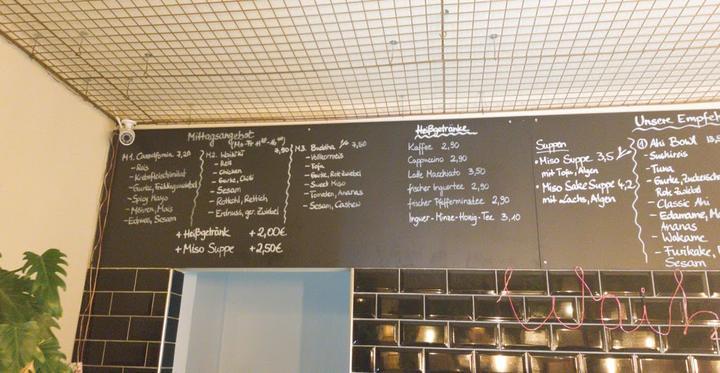 Mittagsangebot
(Mo-Fr
M1. 7,20
- Reis
- Krebsfleischimitat
- Gurke, Frühlingszwiebel
- Spicy Mayo
- Möhren, Mais
- Edamame, Sesam
M2. Waikiki 7,90
- Reis
- Chicken
- Gurke, Chili
- Sesam
- Rotkohl, Rettich
- Erdnuss, ger. Zwiebel
M3. Buddha 7,50
- Vollkornreis
- Tofu
- Gurke, Rote Zwiebel
- Sweet Miso
- Tomaten, Ananas
- Sesam, Cashew
+ Heißgetränk +2,00€
+ Miso Suppe +2,50€
Heißgetränke
Kaffee 2,90
Cappucino 2,90
Latte Macchiato 3,50
frischer Ingwertee 2,90
frischer Pfefferminztee 2,90
Ingwer-Minze-Honig-Tee 3,10
Suppen
• Miso Suppe 3,5
mit Tofu, Algen
• Miso Sake Suppe 4,2
mit Lachs, Algen
Unsere Empfeh
① Ahi Bowl 13,
- Sushireis
- Tuna
- Gurke, Zuckersch
Rote Zwiebel
- Classic Ahi
- Edamame, M
Ananas
- Wakame
- Furikake,
Sesam